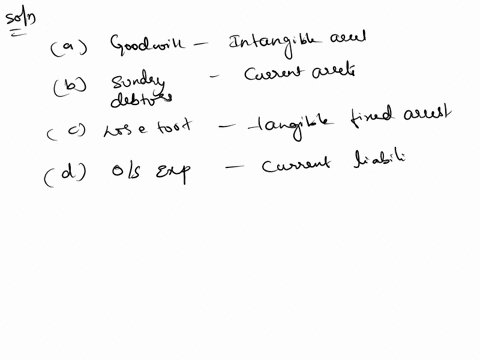 soln
(a) Goodwill – Intangible asset
(b) Sunday debtors – Current assets
(c) Loose tools – Tangible fixed asset
(d) O/s Exp – Current liabili